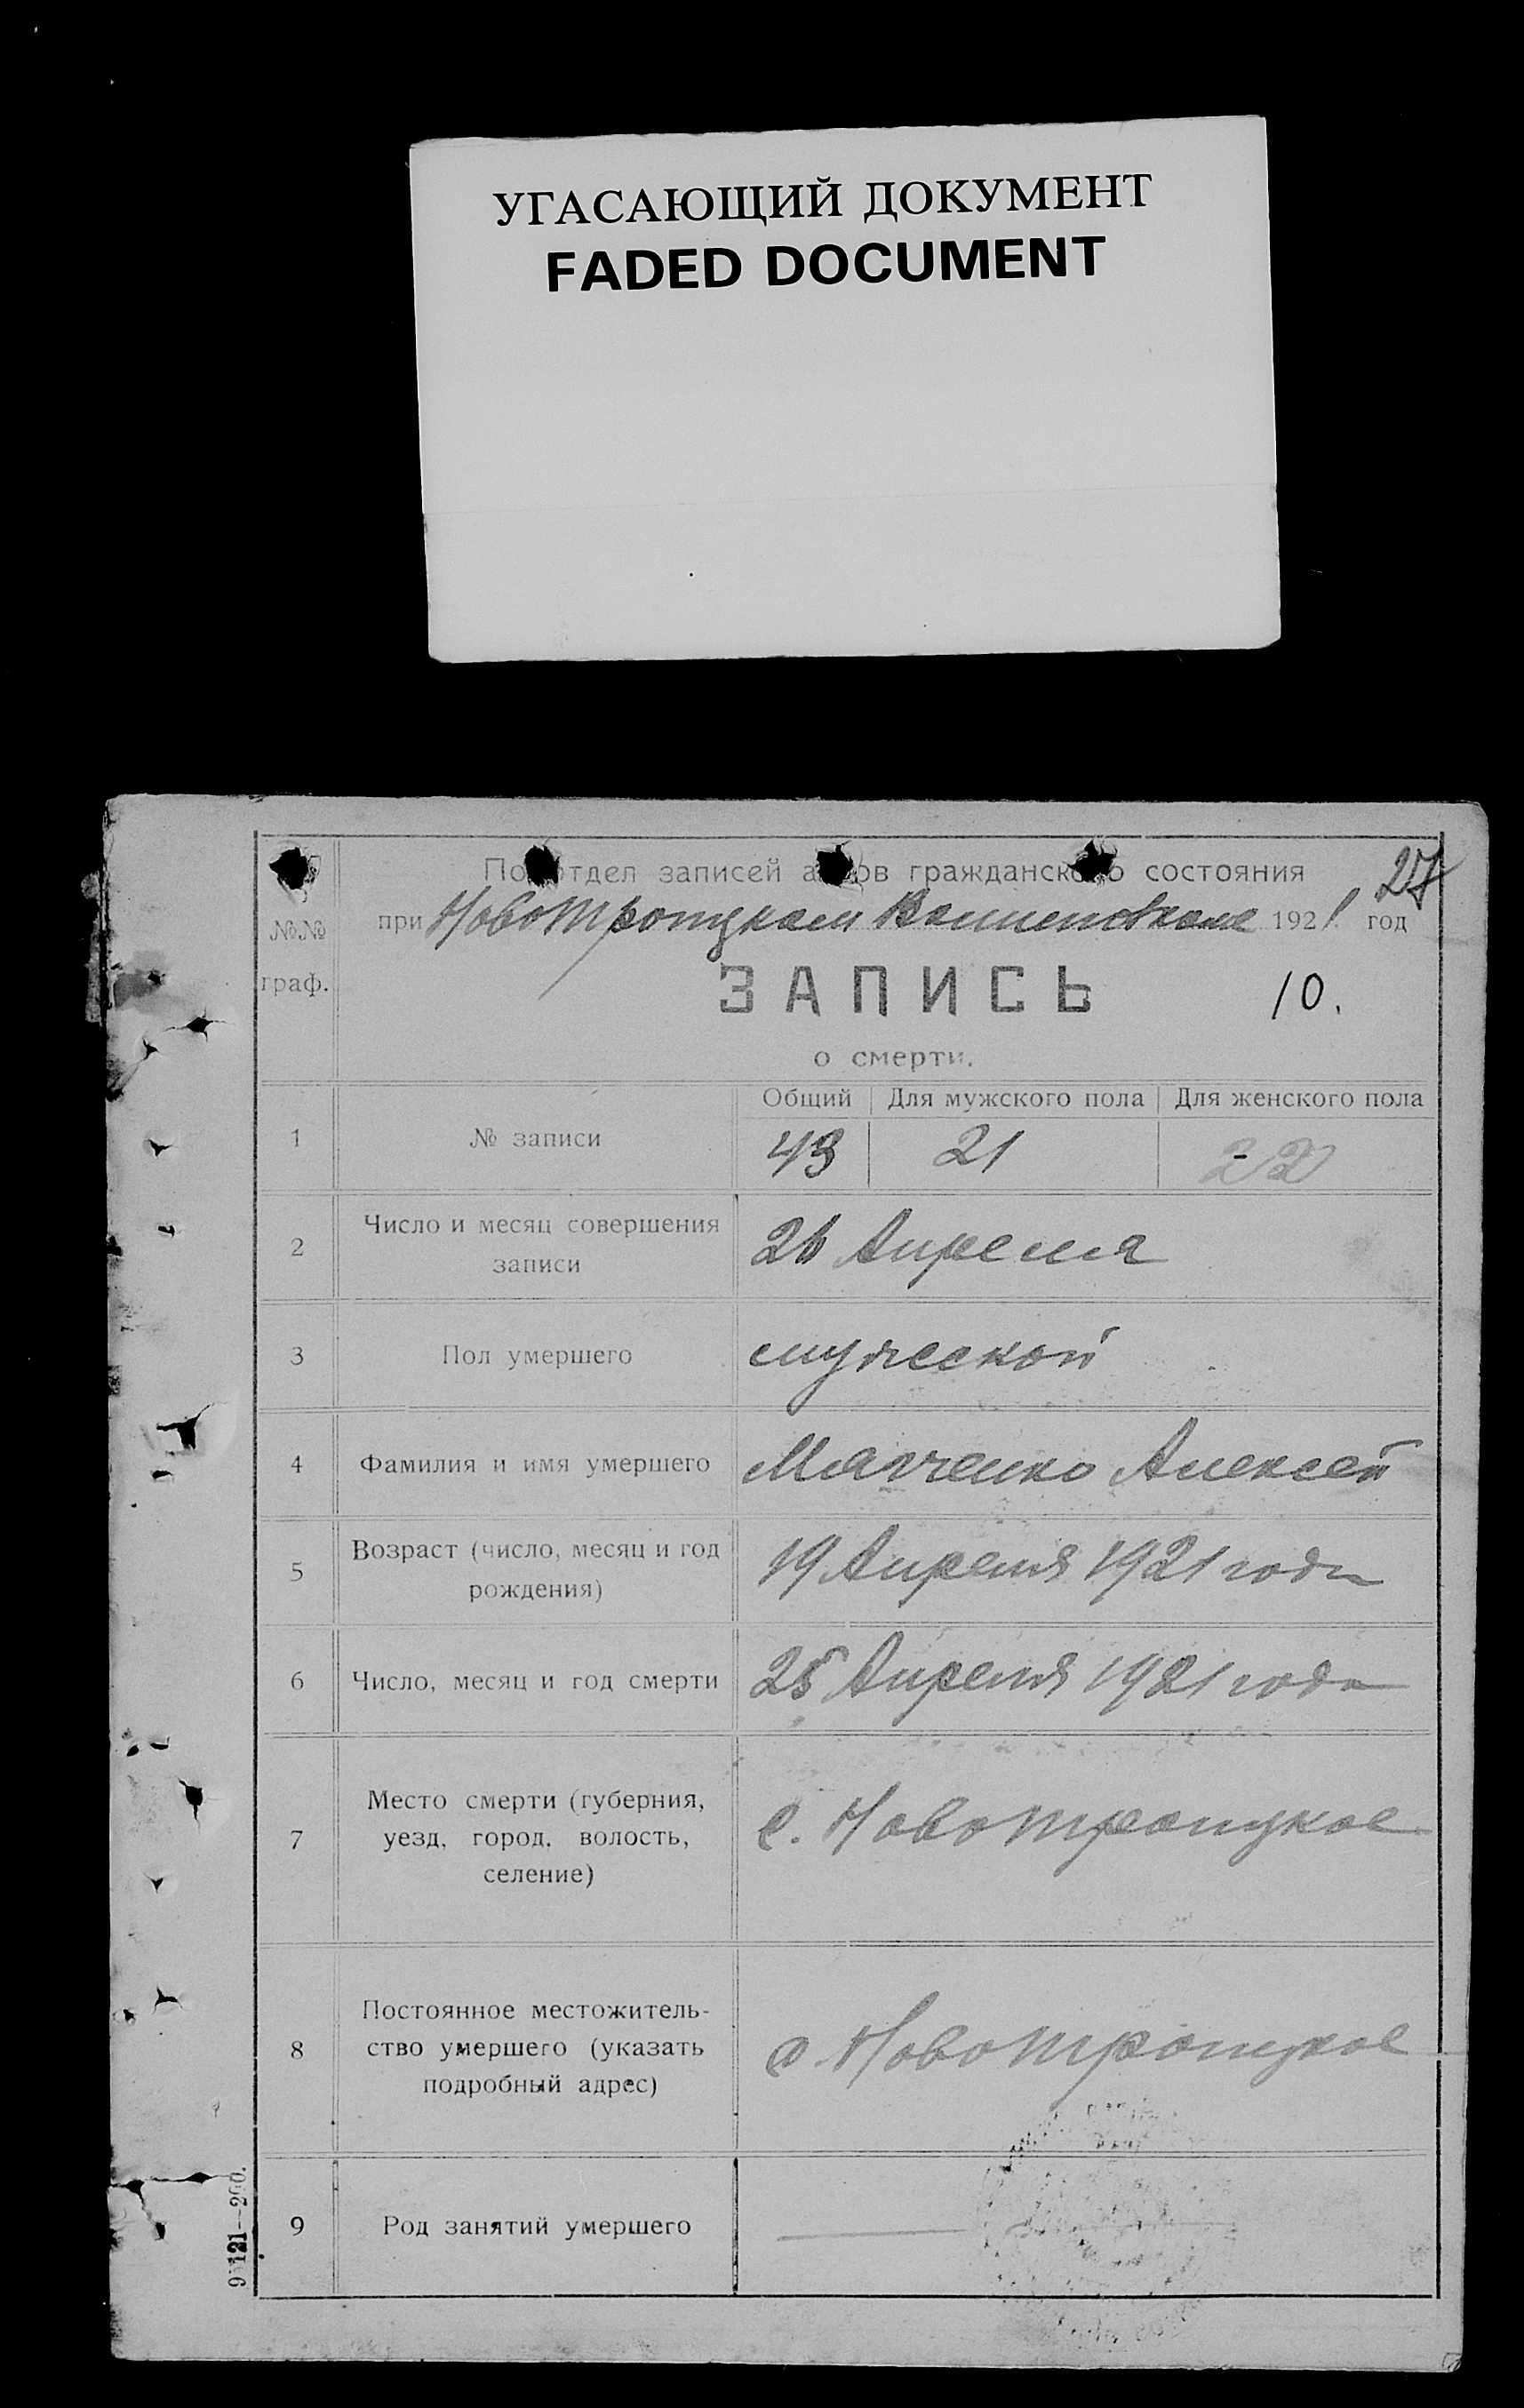 УГАСАЮЩИЙ ДОКУМЕНТ
FADED DOCUMENT
Подотдел записей актов гражданского состояния
27
при Новотроицком 1921 год
№№
граф.
ЗАПИСЬ
10.
о смерти.
Общий Для мужского пола Для женского пола
1 № записи 43 21 22
2 Число и месяц совершения
записи
26 Апреля
3 Пол умершего мужеской
4 Фамилия и имя умершего Алексей
5 Возраст (число, месяц и год
рождения)
19 Апреля 1921 года
6 Число, месяц и год смерти 25 Апреля 1921 года
7 Место смерти (губерния,
уезд, город, волость,
селение)
с. Новотроицкое
8 Постоянное местожитель-
ство умершего (указать
подробный адрес)
с. Новотроицкое
9 Род занятий умершего